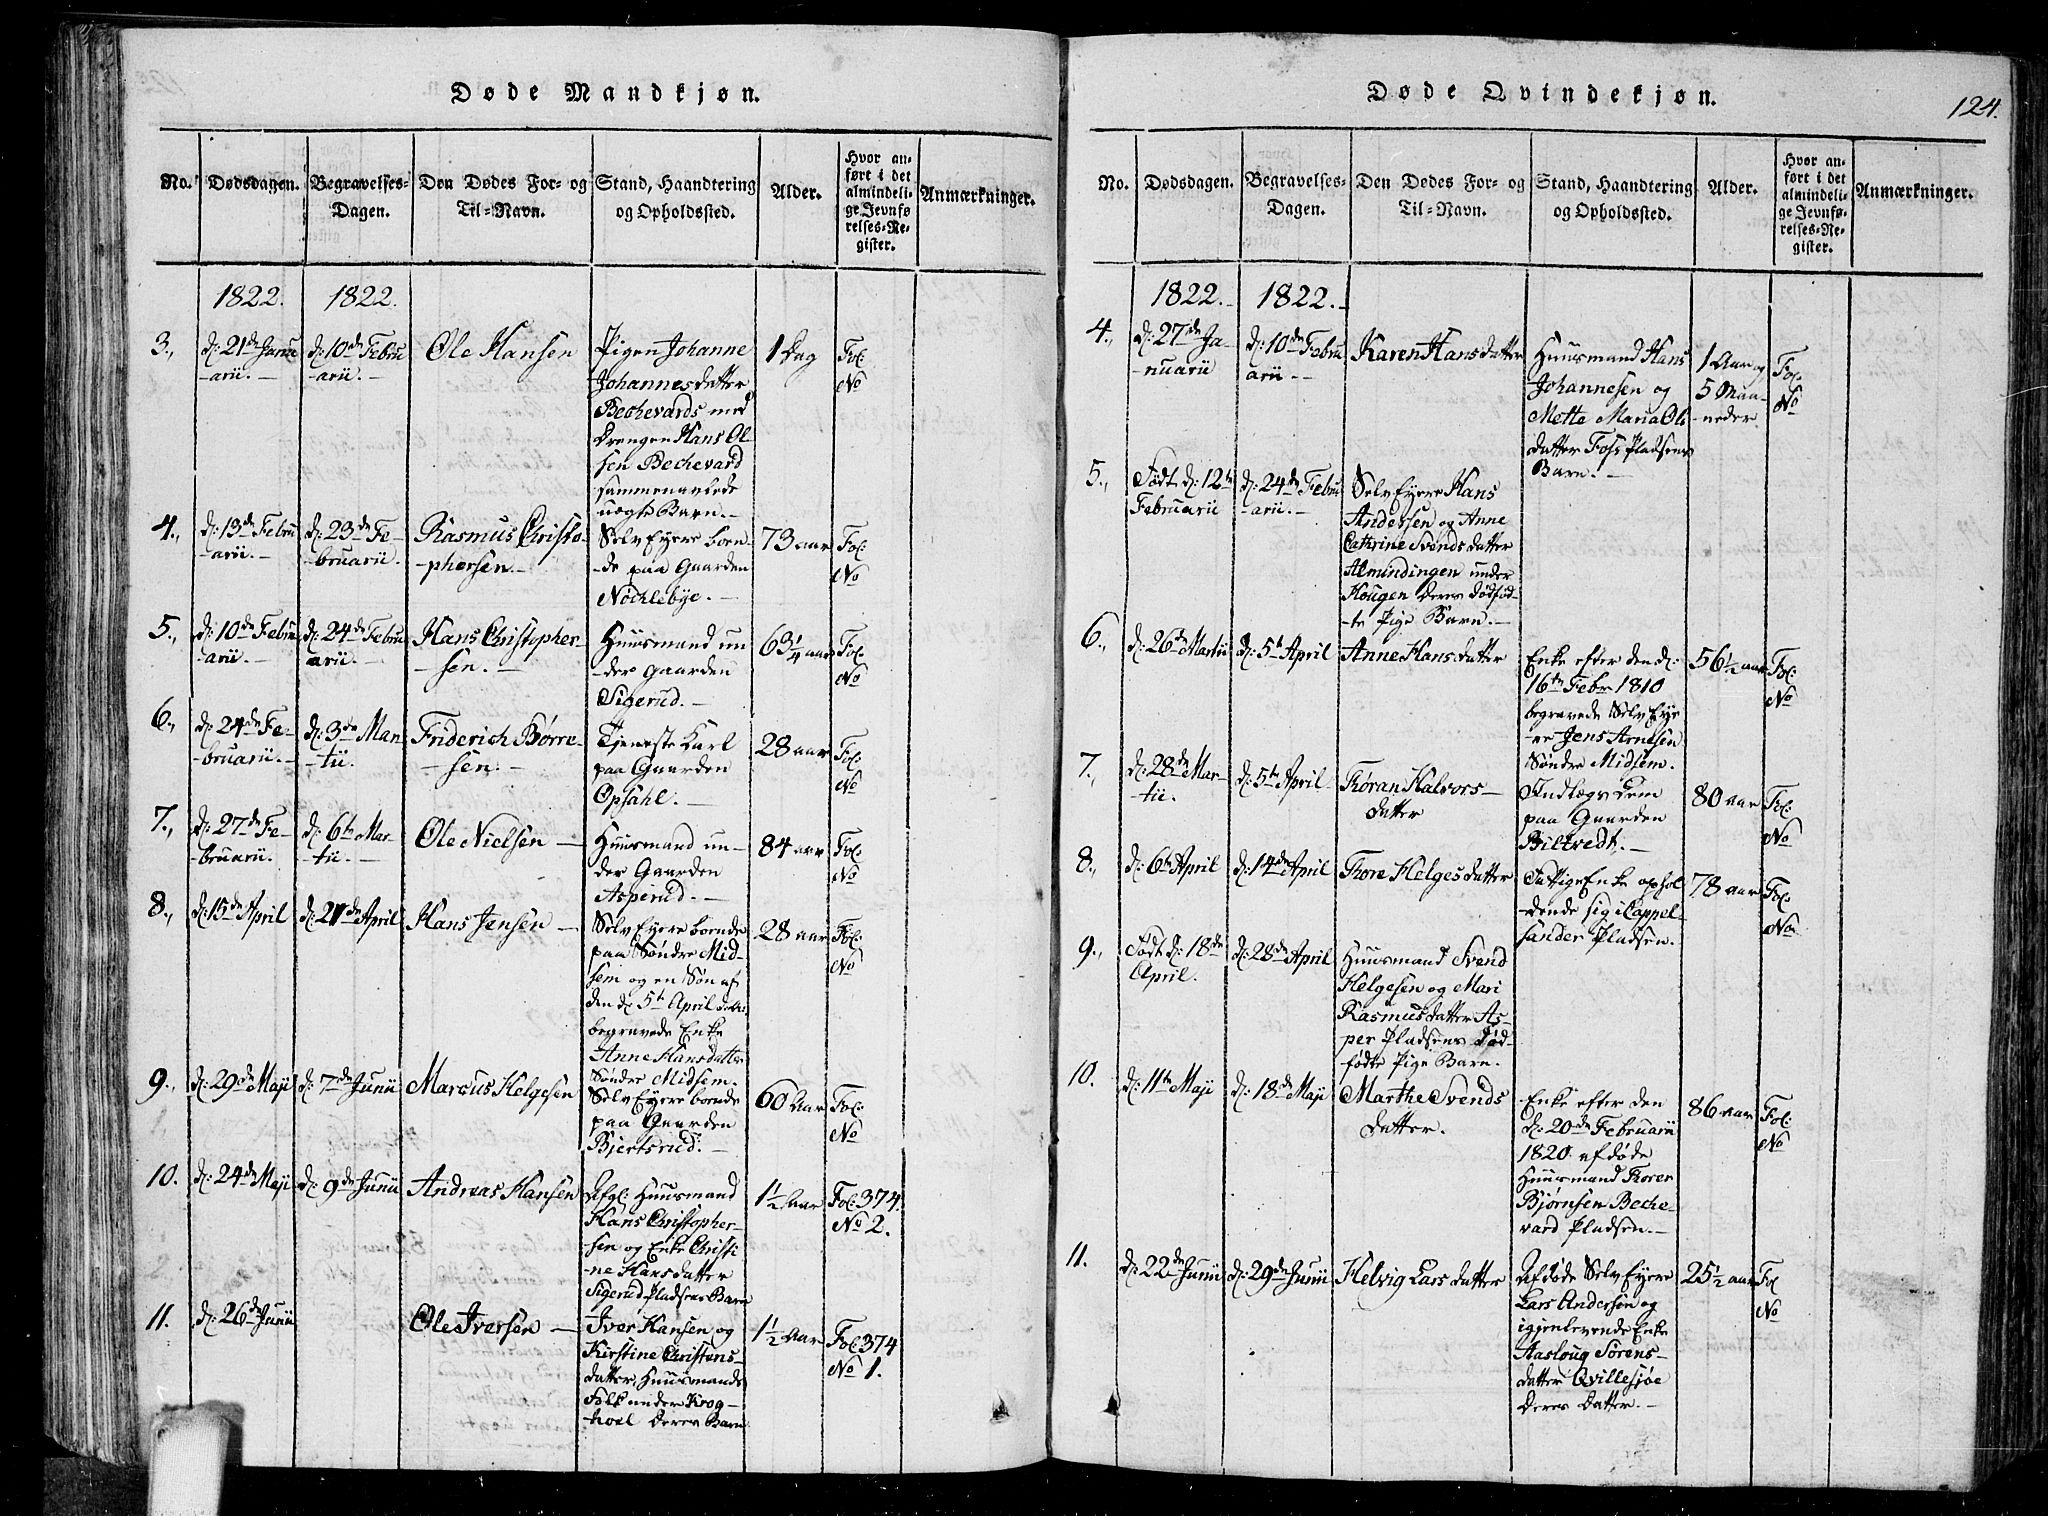 Døde Mandkjøn.
No.
Dødsdagen.
Begravelses-
Dagen.
Den Dødes For- og
Til-Navn.
Stand, Haandtering
og Opholdssted.
Alder.
Hvor an-
ført i det
almindeli-
ge Jevnfø
relses-Re-
gister.
Anmærkninger.
1822.
1822.
3.,
d: 21de Janu
-arii. -
d: 10de Febru
arii. -
Ole Hansen
Pigen Johanne
Johannesdatter
Bechevards med
Drengen Hans Ol
sen Bechevard
sammenavlede
uægte Barn. -
1 Dag
Fol:
No
4.,
d: 13de Febru
-arii. -
d: 23de Fe-
-bruarii.
Rasmus Christo-
-phersen. -
SelvEyere boen-
-de paa Gaarden
Nøchlebye. -
73 aar
Fol:
No
5.,
d: 10de Febru
arii. -
d: 24de Febru
arii. -
Hans Christopher-
-sen. -
Huusmand un
-der Gaarden
Sigerud. -
63 1/4 aar
Fol:
No
6.,
d: 24de Fe-
-bruarii. -
d: 3de Mar
-tii. -
Friderich Børre-
-sen. -
Tjeneste Karl
paa Gaarden
Opsahl. -
28 aar
Fol:
No
7.,
d: 27de Fe-
-bruarii.
d: 6te Mar-
-tii. -
Ole Nielsen -
Huusmand un-
der Gaarden
Asperud. -
84 aar
Fol:
No
8.,
d: 15de April
d: 21de April
Hans Jensen -
SelvEyere boende
paa Søndre Mid-
sem og en Søn af
den d: 5te April
begravede Enke
Anne Hansdatter
Søndre Midsem.
28 aar
Fol:
No
9.,
d: 29de Maji
d: 7de Junii
Marcus Helgesen
SelvEyere boende
paa Gaarden
Bjertsrud. -
60 Aar
Fol:
No
10.
d: 24de Maji
d: 9de Junii
Andreas Hansen
Afgl: Huusmand
Hans Christopher-
sen og Enke Christi
-ne Hansdatter
Sigerud Pladsens Barn
1 1/2 Aar
Fol: 374.
No 2.
11.
d: 26de Junii
Ole Iversen -
Iver Hansen og
Kirstine Christens-
datter, Huusmands
Folk under Krog-
-hoel deres Barn
1 1/2 Aar
Fol: 374
No 1.
Døde Qvindekjøn.
124.
No.
Dødsdagen.
Begravelses-
Dagen.
Den Dødes For- og
Til-Navn.
Stand, Haandtering
og Opholdssted.
Alder.
Hvor an-
ført i det
almindeli-
ge Jevnfø-
relses-Re-
gister.
Anmærkninger.
1822. -
1822. -
4.,
d: 27de Ja-
-nuarii
d: 10de Febru
arii. -
Karen Hansdatter
Huusmand Hans
Johannesen og
Mette Maria Ols
datter Foss Pladsens
Barn. -
1 Aar og
5 Maa-
-neder
Fol:
No
5.,
Født d: 12te
Februarii
d: 24de Febru
-arii. -
SelvEyere Hans
Andersen og Anne
Cathrine Svendsdatter
Almindingen under
Hougen deres dødfød-
-te Pige Barn. -
6.,
d: 26de Martii
d: 5te April
Anne Hansdatter
Enke efter den d:
16te Febr 1810
begravede SelvEye
-re Jens Arnesen
Søndre Midsem.
56 1/2 aar
Fol:
No
7.,
d: 28de Mar-
-tii.
d: 5te April
Thoran Halvors-
datter
Indlægs Lem
paa Gaarden
Biltvedt. -
80 aar
Fol:
No
8.,
d: 6te April
d: 14de April
Thore Helgesdatter
Fattig Enke ophol
-dende sig i Cappel-
sander Pladsen.
78 aar
Fol:
No
9.,
Født d: 18de
April.
d: 28de April
Huusmand Svend
Helgesen og Mari
Rasmusdatter As-
per Pladsens død-
fødte Pige Barn. -
10.
d: 11te Maji
d: 18de Maji
Marthe Svends
datter.
Enke efter den
d: 20de Februarii
1820 afdøde
Huusmand Thorer
Bjørnsen Beche-
vard Pladsen. -
86 aar
Fol:
No
11.
d: 22de Junii
d: 29de Junii
Helvig Larsdatter
Afdøde SelvEyere
Lars Andersen og
igjenlevende Enke
Aasloug Sørens-
datter Qvillesjøe
deres Datter. -
25 1/2 aar
Fol
No